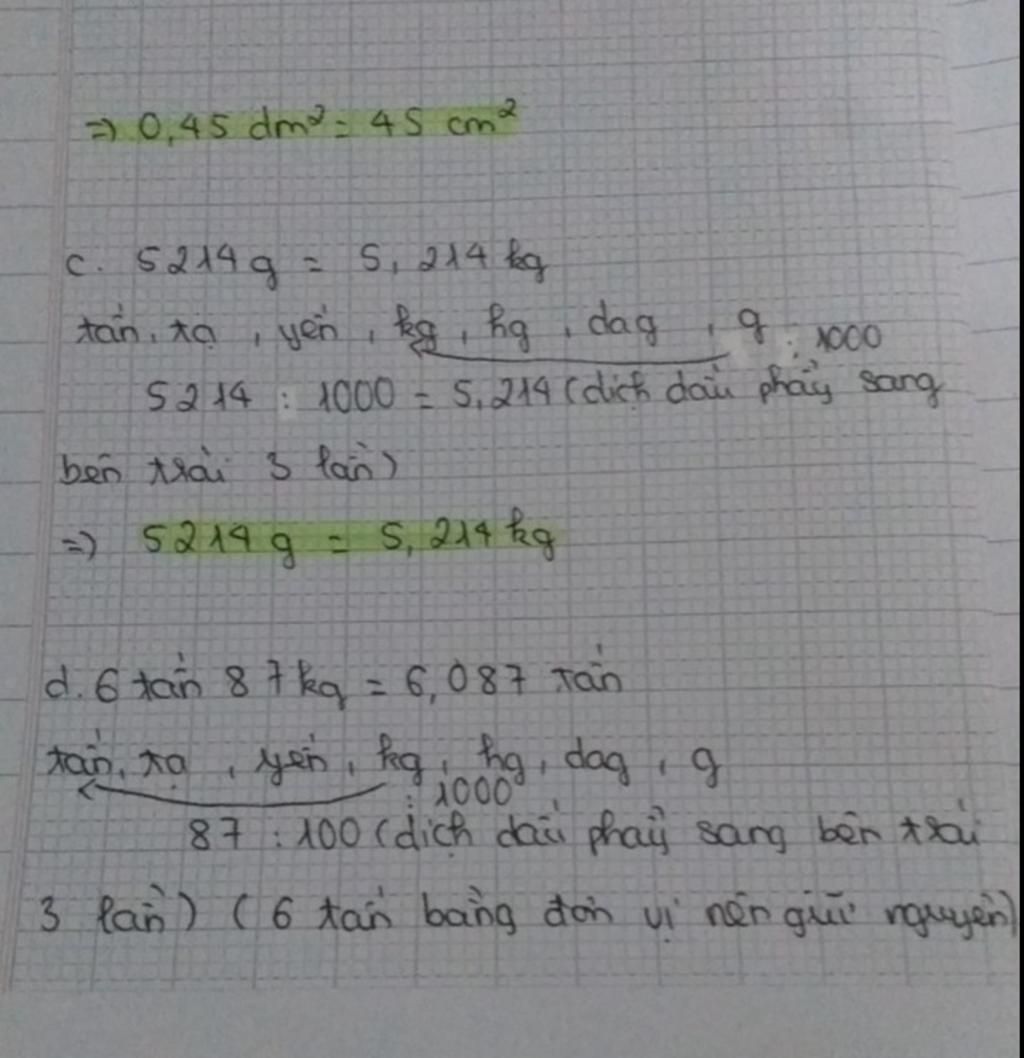 => 0,45 dm² = 45 cm²
c. 5214g = 5,214 kg
tấn, tạ, yến, kg, hg, dag, g
: 1000
5214 : 1000 = 5,214 (dịch dấu phẩy sang
bên trái 3 lần)
=> 5214g = 5,214 kg
d. 6 tấn 87kg = 6,087 tấn
tấn, tạ, yến, kg, hg, dag, g
: 1000
87 : 100 (dịch dấu phẩy sang bên trái
3 lần) (6 tấn bằng đơn vị nên giữ nguyên)